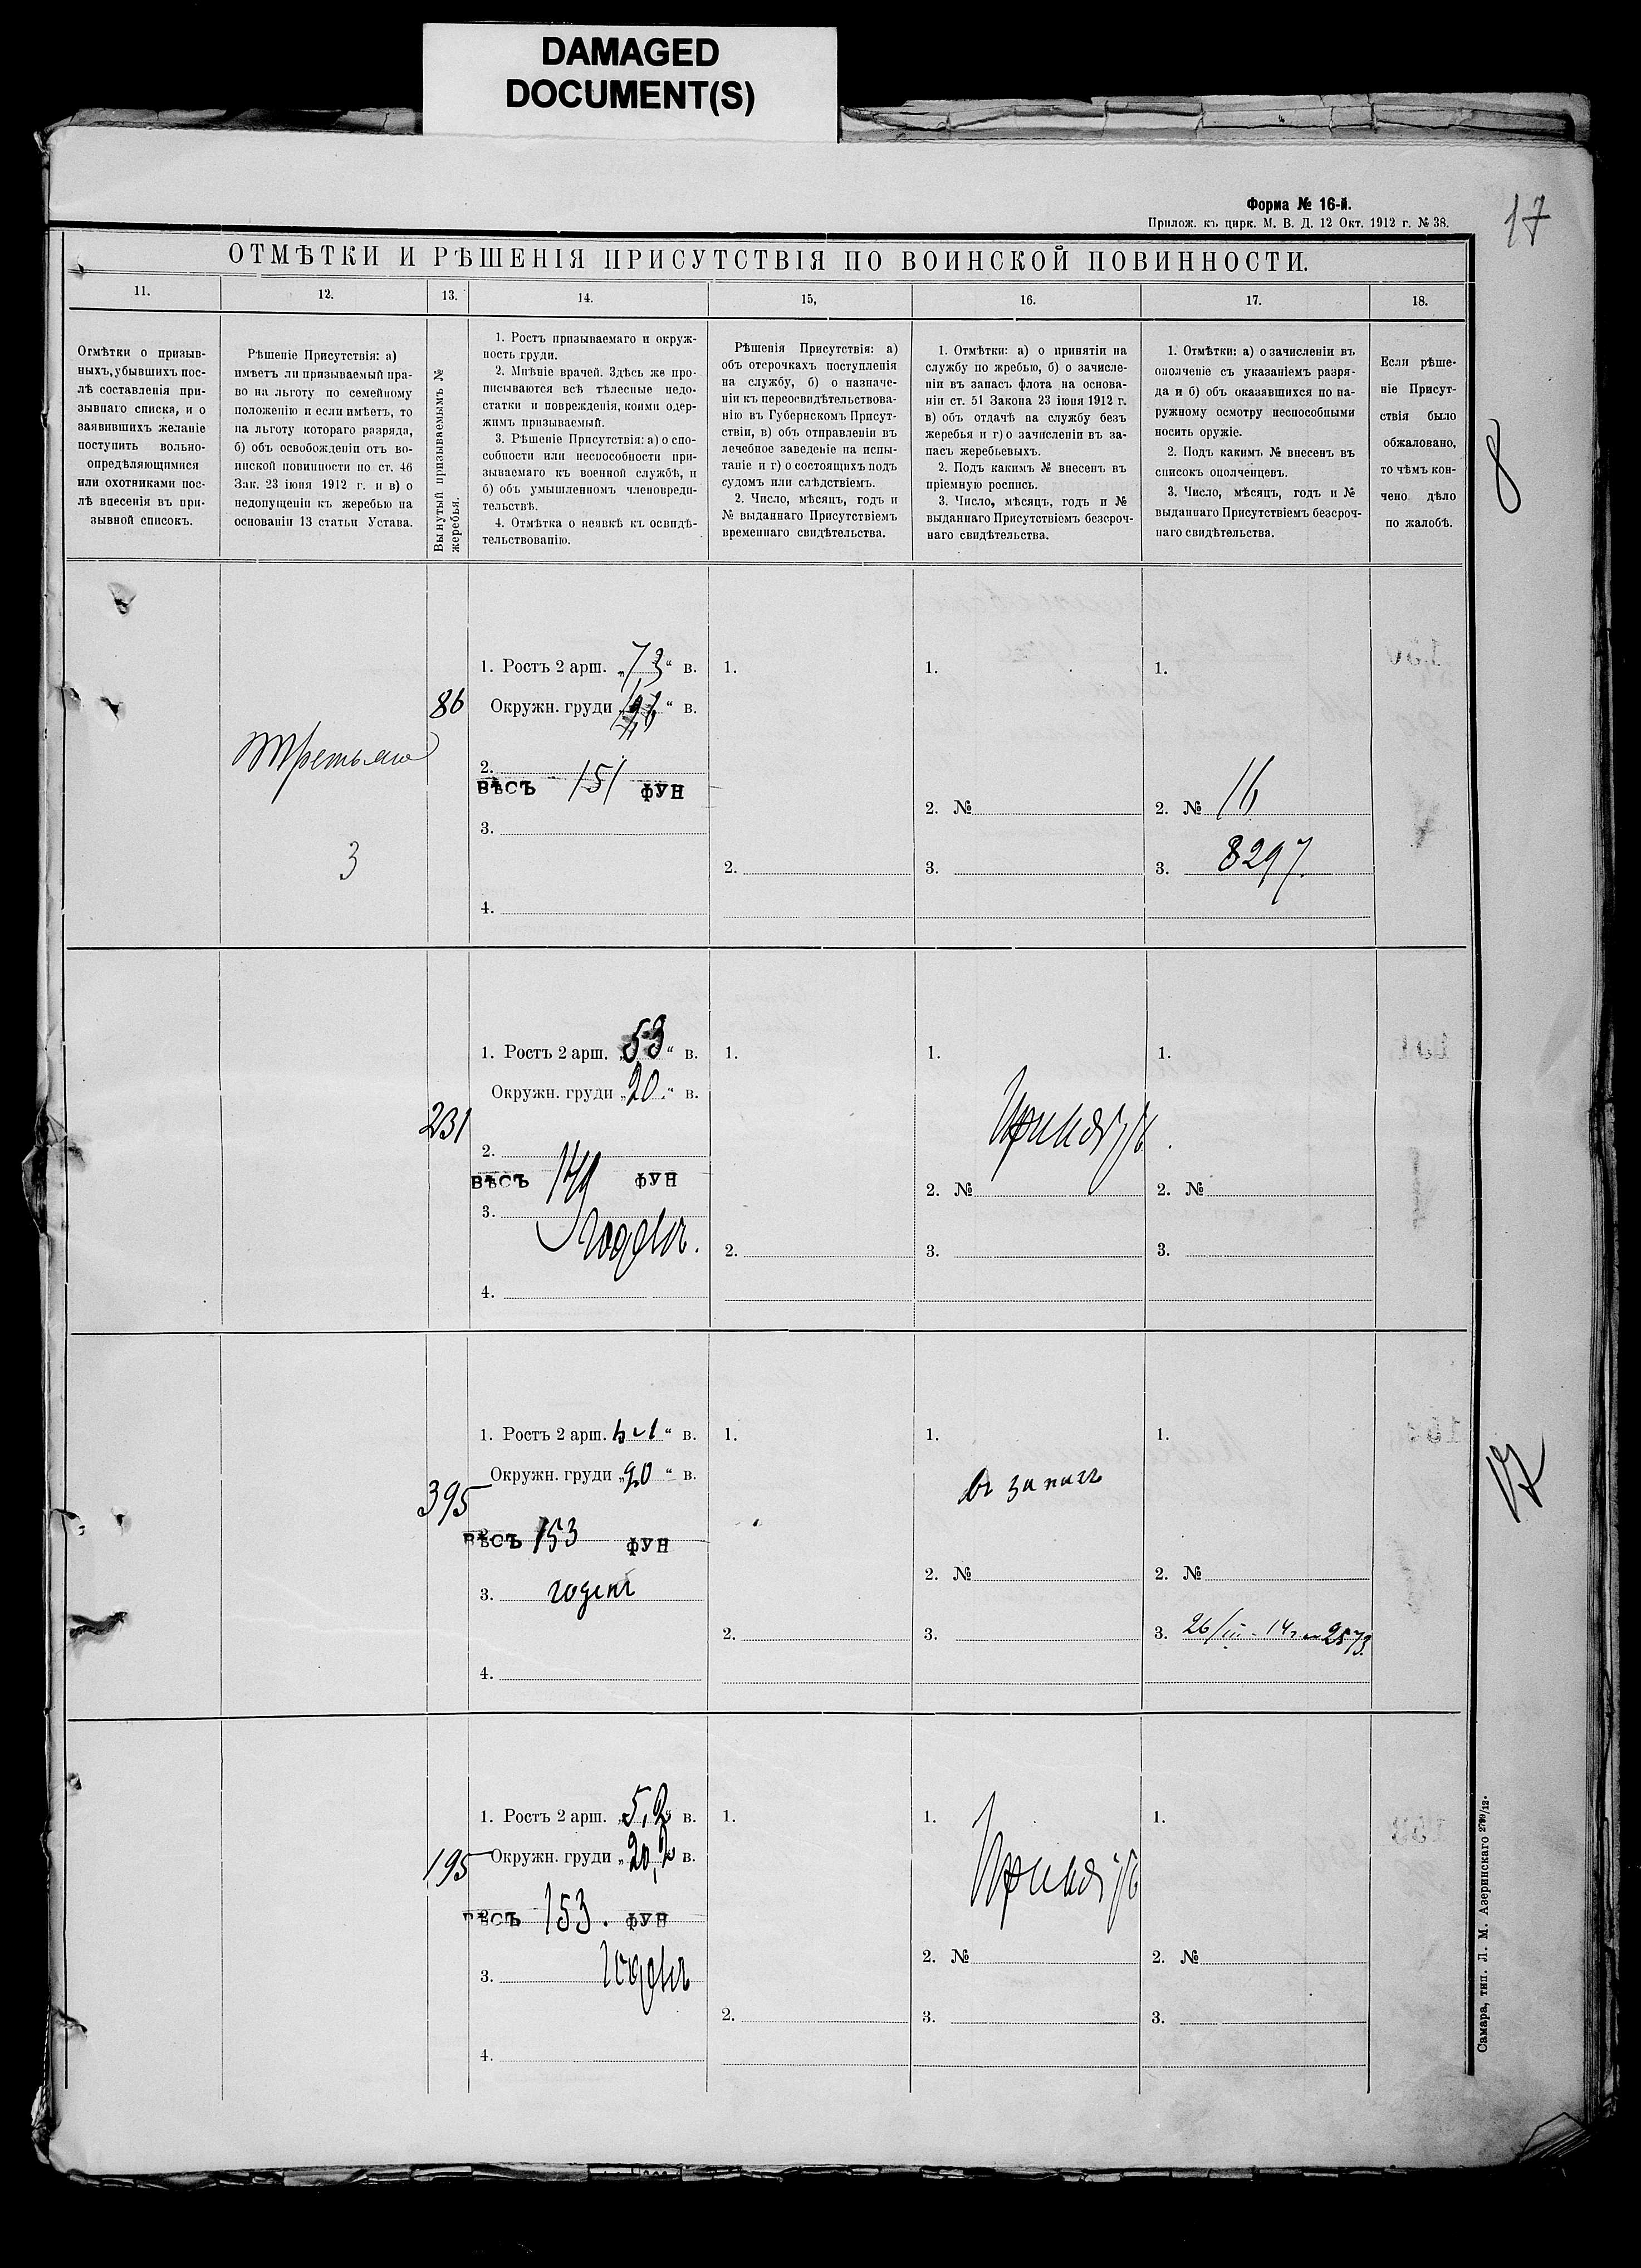 DAMAGED
DOCUMENT(S)
Форма № 16-й.
Прилож. къ цирк. М. В. Д. 12 Окт. 1912 г. № 38.
17
ОТМѢТКИ И РѢШЕНІЯ ПРИСУТСТВІЯ ПО ВОИНСКОЙ ПОВИННОСТИ.
11.
12.
13.
14.
15,
16.
17.
18.
Отмѣтки о призыв-
ныхъ, убывшихъ пос-
лѣ составленія при-
зывнаго списка, и о
заявившихъ желаніе
поступить вольно-
опредѣляющимися
или охотниками пос-
лѣ внесенія въ при-
зывной списокъ.
Рѣшеніе Присутствія: а)
имѣетъ ли призываемый пра-
во на льготу по семейному
положенію и если имѣетъ, то
на льготу котораго разряда,
б) объ освобожденіи отъ во-
инской повинности по ст. 46
Зак. 23 іюня 1912 г. и в) о
недопущеніи къ жеребью на
основаніи 13 статьи Устава.
Вынутый призываемымъ №
жеребья.
1. Ростъ призываемаго и окруж-
ность груди.
2. Мнѣніе врачей. Здѣсь же про-
писываются всѣ тѣлесные недо-
статки и поврежденія, коими одер-
жимъ призываемый.
3. Рѣшеніе Присутствія: а) о спо-
собности или неспособности при-
зываемаго къ военной службѣ, и
б) объ умышленномъ членовреди-
тельствѣ.
4. Отмѣтка о неявкѣ къ освидѣ-
тельствованію.
Рѣшенія Присутствія: а)
объ отсрочкахъ поступленія
на службу, б) о назначе-
ніи къ переосвидѣтельствова-
нію въ Губернскомъ Присут-
ствіи, в) объ отправленіи въ
лечебное заведеніе на испы-
таніе и г) о состоящихъ подъ
судомъ или слѣдствіемъ.
2. Число, мѣсяцъ, годъ и
№ выданнаго Присутствіемъ
временнаго свидѣтельства.
1. Отмѣтки: а) о принятіи на
службу по жребью, б) о зачисле-
ніи въ запасъ флота на основа-
ніи ст. 51 Закона 23 іюня 1912 г.
в) объ отдачѣ на службу безъ
жеребья и г) о зачисленіи въ за-
пасъ жеребьевыхъ.
2. Подъ какимъ № внесенъ въ
пріемную роспись.
3. Число, мѣсяцъ, годъ и №
выданнаго Присутствіемъ безсроч-
наго свидѣтельства.
1. Отмѣтки: а) о зачисленіи въ
ополченіе съ указаніемъ разря-
да и б) объ оказавшихся по на-
ружному осмотру неспособными
носить оружіе.
2. Подъ какимъ № внесенъ въ
списокъ ополченцевъ.
3. Число, мѣсяцъ, годъ и №
выданнаго Присутствіемъ безсроч-
наго свидѣтельства.
Если рѣше-
ніе Присут-
ствія было
обжаловано,
то чѣмъ кон-
чено дѣло
по жалобѣ.
8
1. Ростъ 2 арш. „7,3“ в.
1.
1.
1.
86
Окружн. груди „ “ в.
2.
ВѢСЪ 151 ФУН
2. №
2. № 16
3.
3
2.
3.
3. 8297.
4.
1. Ростъ 2 арш. „53“ в.
1.
1.
1.
Окружн. груди „20“ в.
231
Принятъ
2.
ВѢСЪ ФУН
2. №
2. №
3.
Годенъ.
2.
3.
3.
4.
1. Ростъ 2 арш. “ в.
1.
1.
1.
Окружн. груди „20“ в.
въ запасъ
395
ВѢСЪ 153 ФУН
2. №
2. №
3. годенъ
2.
3.
3. 26/III - 14 г. 2573.
4.
1. Ростъ 2 арш. „5,2“ в.
1.
1.
1.
195
Окружн. груди „20,2“ в.
Принятъ
ВѢСЪ 153. ФУН
2. №
2. №
3. Годенъ
2.
3.
3.
4.
Самара, тип. Л. М. Азеринскаго